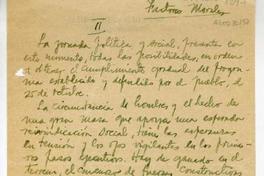 Pastoral Morales
II
La jornada política y social, presenta en
este momento, todas las posibilidades, en orden
a obtener el cumplimiento gradual del programa
establecido y defendido por el pueblo, el
25 de octubre.
La circunstancia de hombres y el hecho de
una gran masa que apoya una esperada
reivindicación social, tienen las esperanzas
en tensión y los ojos vigilantes en los primeros
pasos ejecutivos. Hoy se ganado en el
terreno, el consenso de fuerzas constructivas